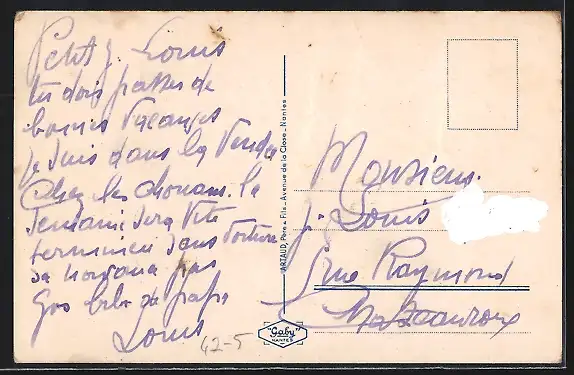 Petit J. Louis
tu dois passer de
bonnes vacances
je suis dans la Vendée
chez les chouans. la
semaine sera vite
terminée sans voiture
pas
Gros bibi de papa
Louis
42-5
ARTAUD, Père & Fils - Avenue de la Close - Nantes
"Gaby"
NANTES
Monsieur
J. Louis
Rue Raymond
Chateauroux